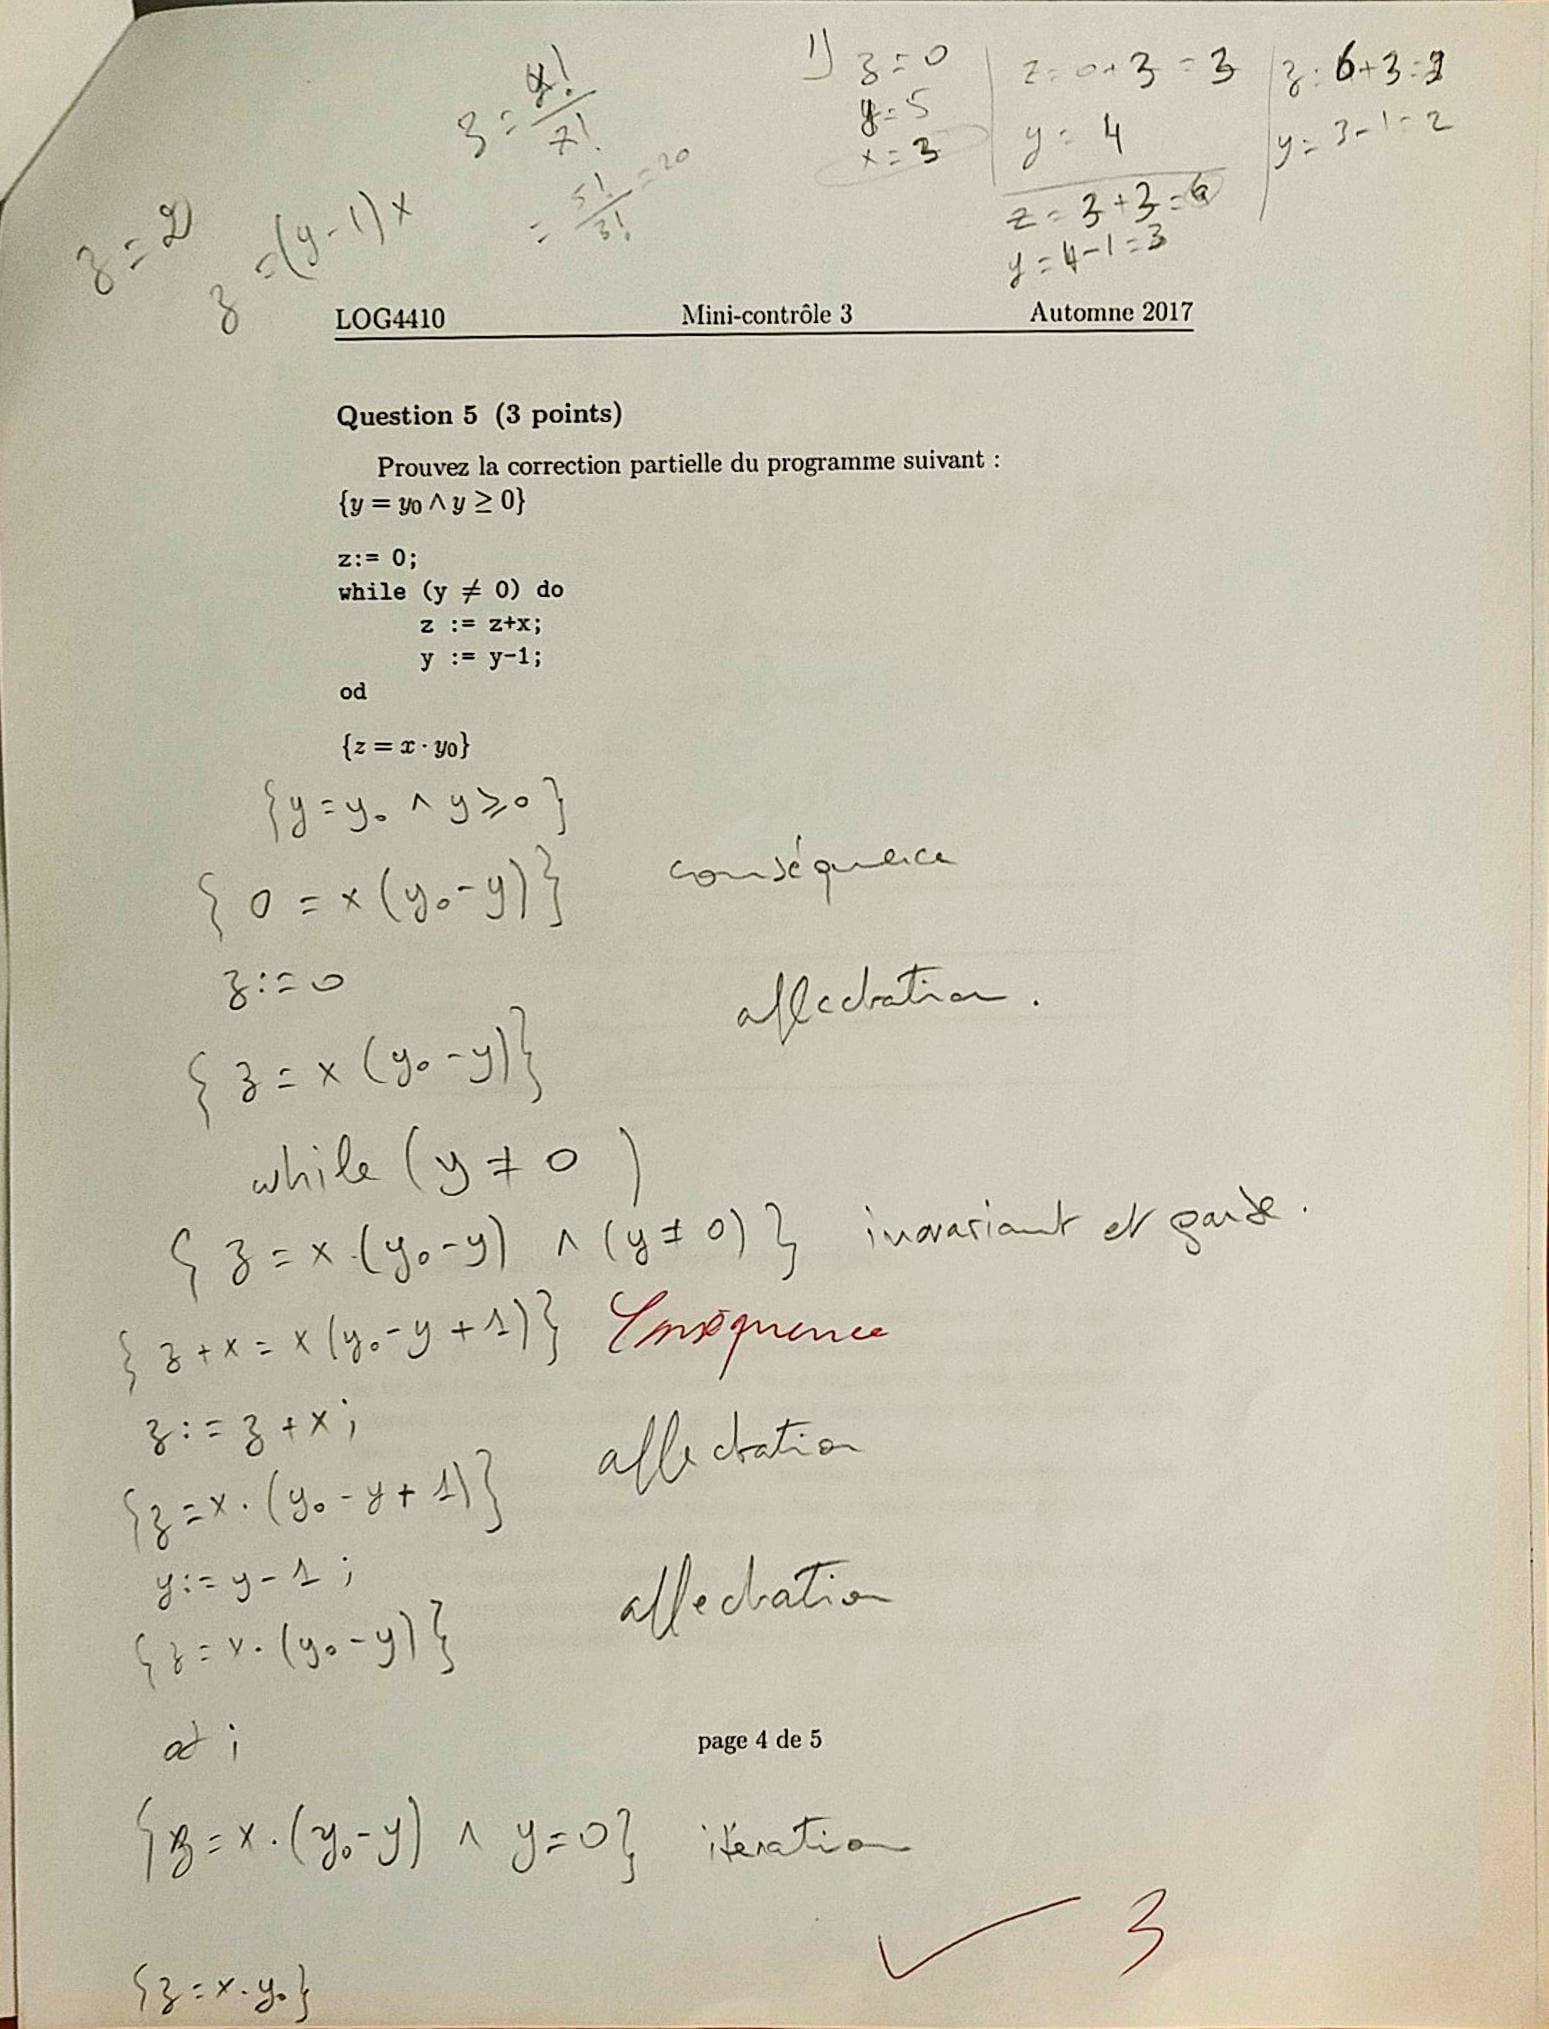 z = 2
z = (y-1) x
z = y! / x!
= 5! / 3! = 20
1) z = 0
y = 5
x = 3
z = 0 + 3 = 3
y = 4
z = 3 + 3 = 6
y = 4 - 1 = 3
z = 6 + 3 = 9
y = 3 - 1 = 2
LOG4410 Mini-contrôle 3 Automne 2017
Question 5 (3 points)
Prouvez la correction partielle du programme suivant :
{y = y₀ ∧ y ≥ 0}
z:= 0;
while (y ≠ 0) do
z := z+x;
y := y-1;
od
{z = x · y₀}
{y = y₀ ∧ y ≥ 0}
{0 = x (y₀ - y)} conséquence
z := 0 affectation.
{z = x (y₀ - y)}
while (y ≠ 0 )
{z = x · (y₀ - y) ∧ (y ≠ 0)} invariant et garde.
{z + x = x (y₀ - y + 1)} Conséquence
z := z + x ; affectation
{z = x · (y₀ - y + 1)}
y := y - 1 ; affectation
{z = x · (y₀ - y)}
od ;
page 4 de 5
{z = x · (y₀ - y) ∧ y = 0} itération
✓ 3
{z = x · y₀}